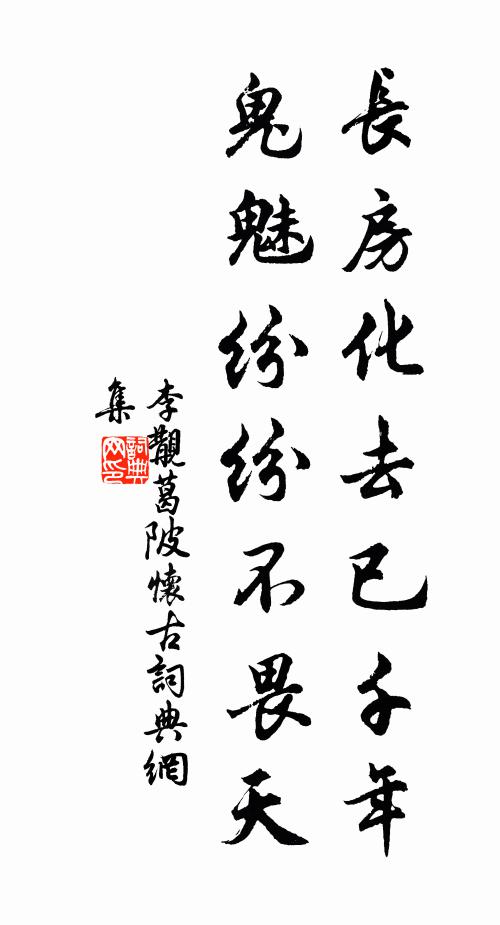 長房化去已千年
鬼魅紛紛不畏天
李覯葛陂懷古詞典網
集
詞典
网印